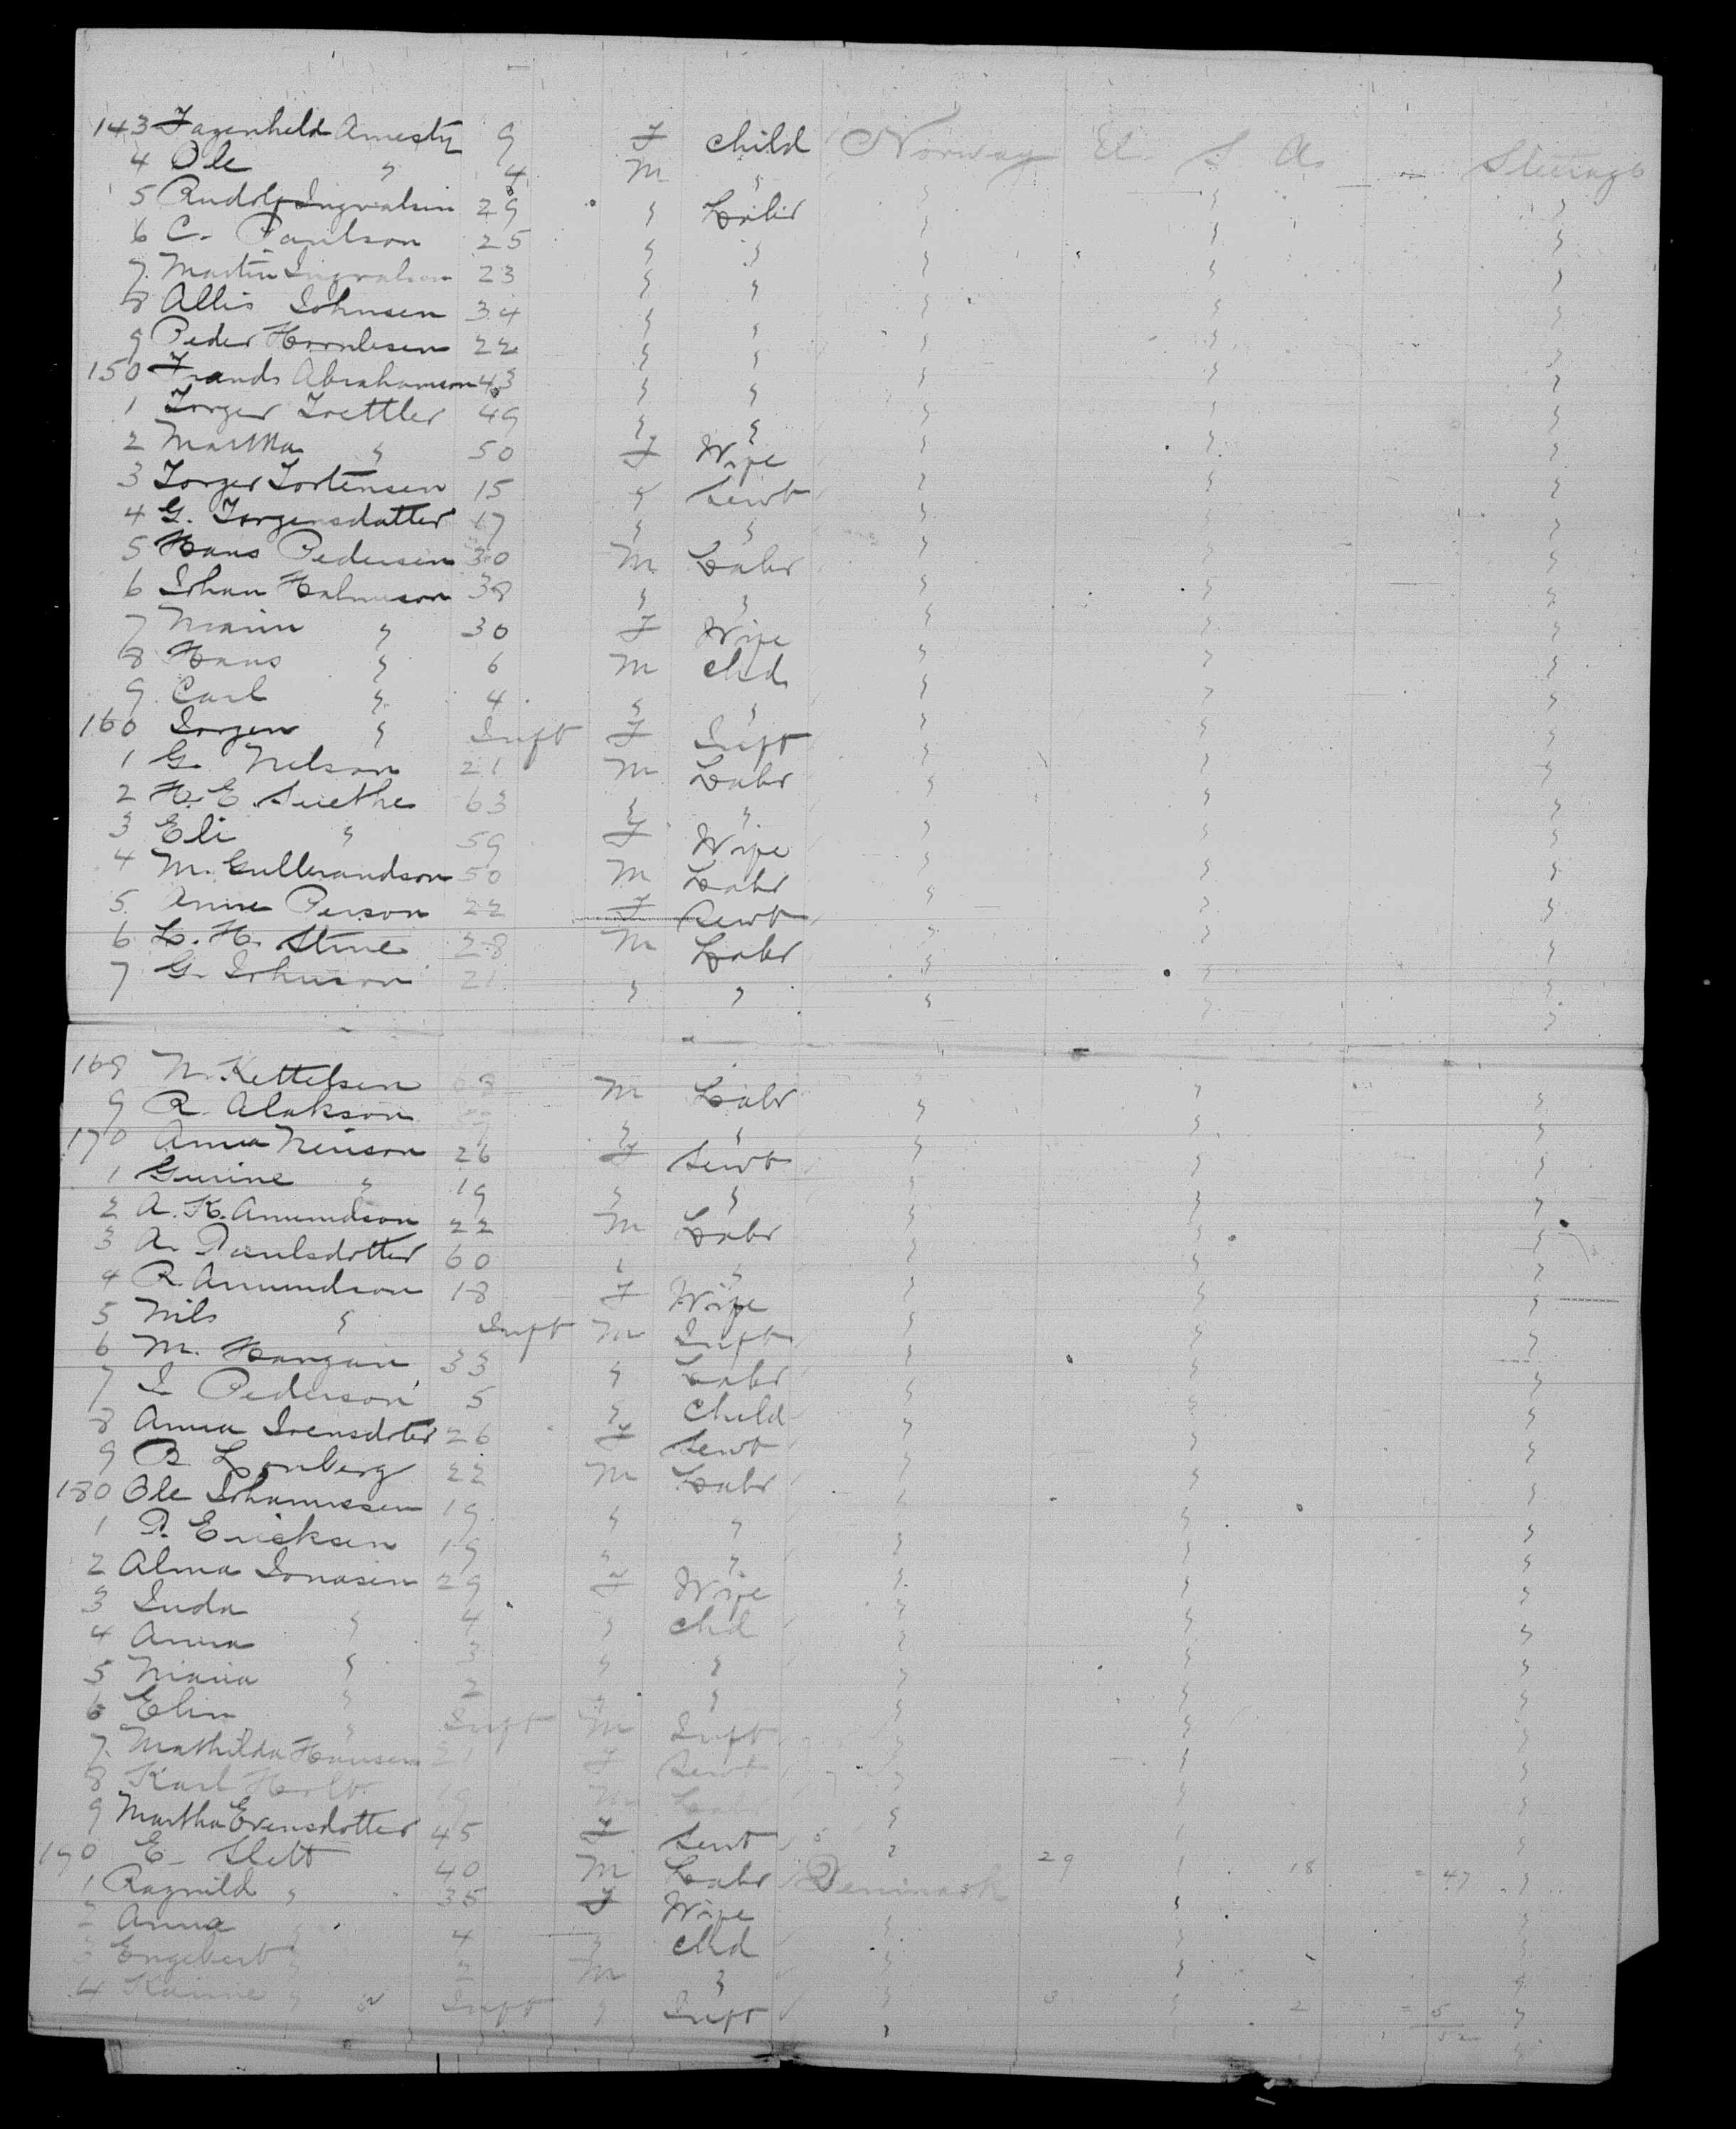 143 Fagenheld Amesty 9 F child Norway U. S. A. Steerage
4 Ole " 4 M " " " "
5 Rudolf Ingvalsen 29 " Labr " " "
6 C. Paulson 25 " " " " "
7 Martin Ingvalson 23 " " " " "
8 Allis Johnsen 34 " " " " "
9 Peder 22 " " " " "
150 Frands Abrahamson 43 " " " " "
1 Torger 49 " " " " "
2 Martha " 50 F Wife " " "
3 Torger Tortensen 15 " Servt " " "
4 G. Torgensdatter 17 " " " " "
5 Hans Pedersen 30 M Labr " " "
6 Johan Halmuson 38 " " " " "
7 " 30 F Wife " " "
8 Hans " 6 M chd " " "
9 Carl " 4 " " " " "
160 Jorgen " Inft F Inft " " "
1 G. Nelson 21 M Labr " " "
2 H. E. Suethe 63 " " " " "
3 Eli " 59 F Wife " " "
4 M. Gulbrandson 50 M Labr " " "
5 Anne Person 22 F Servt " " "
6 L. H. Stine 28 M Labr " " "
7 G. Johnson 21 " " " " "
168 N. Kettelsen 68 M Labr " " "
9 R. Alakson " " " " "
170 Anna Nenson 26 F Servt " " "
1 Gurine " 19 " " " " "
2 A. K. Amundson 22 M Labr " " "
3 A. Paulsdotter 60 " " " " "
4 R. Amundson 18 F Wife " " "
5 Nils " Inft M Inft " " "
6 M. Haugan 33 " Labr " " "
7 I Pederson 5 " Child " " "
8 Anna Ivensdoter 26 F Servt " " "
9 B Lonberg 22 M Labr " " "
180 Ole Johannssen 19 " " " " "
1 P. Ericksen 19 " " " " "
2 Alma Jonasen 29 F Wife " " "
3 Inda " 4 " chd " " "
4 Anna " 3 " " " " "
5 Maria " 2 " " " " "
6 Elin " Inft M Inft " " "
7 Mathilda Hansen 21 F Servt " " "
8 Karl Holt 19 M Labr " " "
9 Martha Evensdotter 45 F Servt " " "
190 E. Slett 40 M Labr Denmark 29 " 18 = 47 "
1 Ragnild " 35 F Wife " " "
2 Anna " 4 " chd " " "
3 Engebert " 2 M " " " "
4 Karine " Inft " Inft " 3 " 2 = 5 "
52